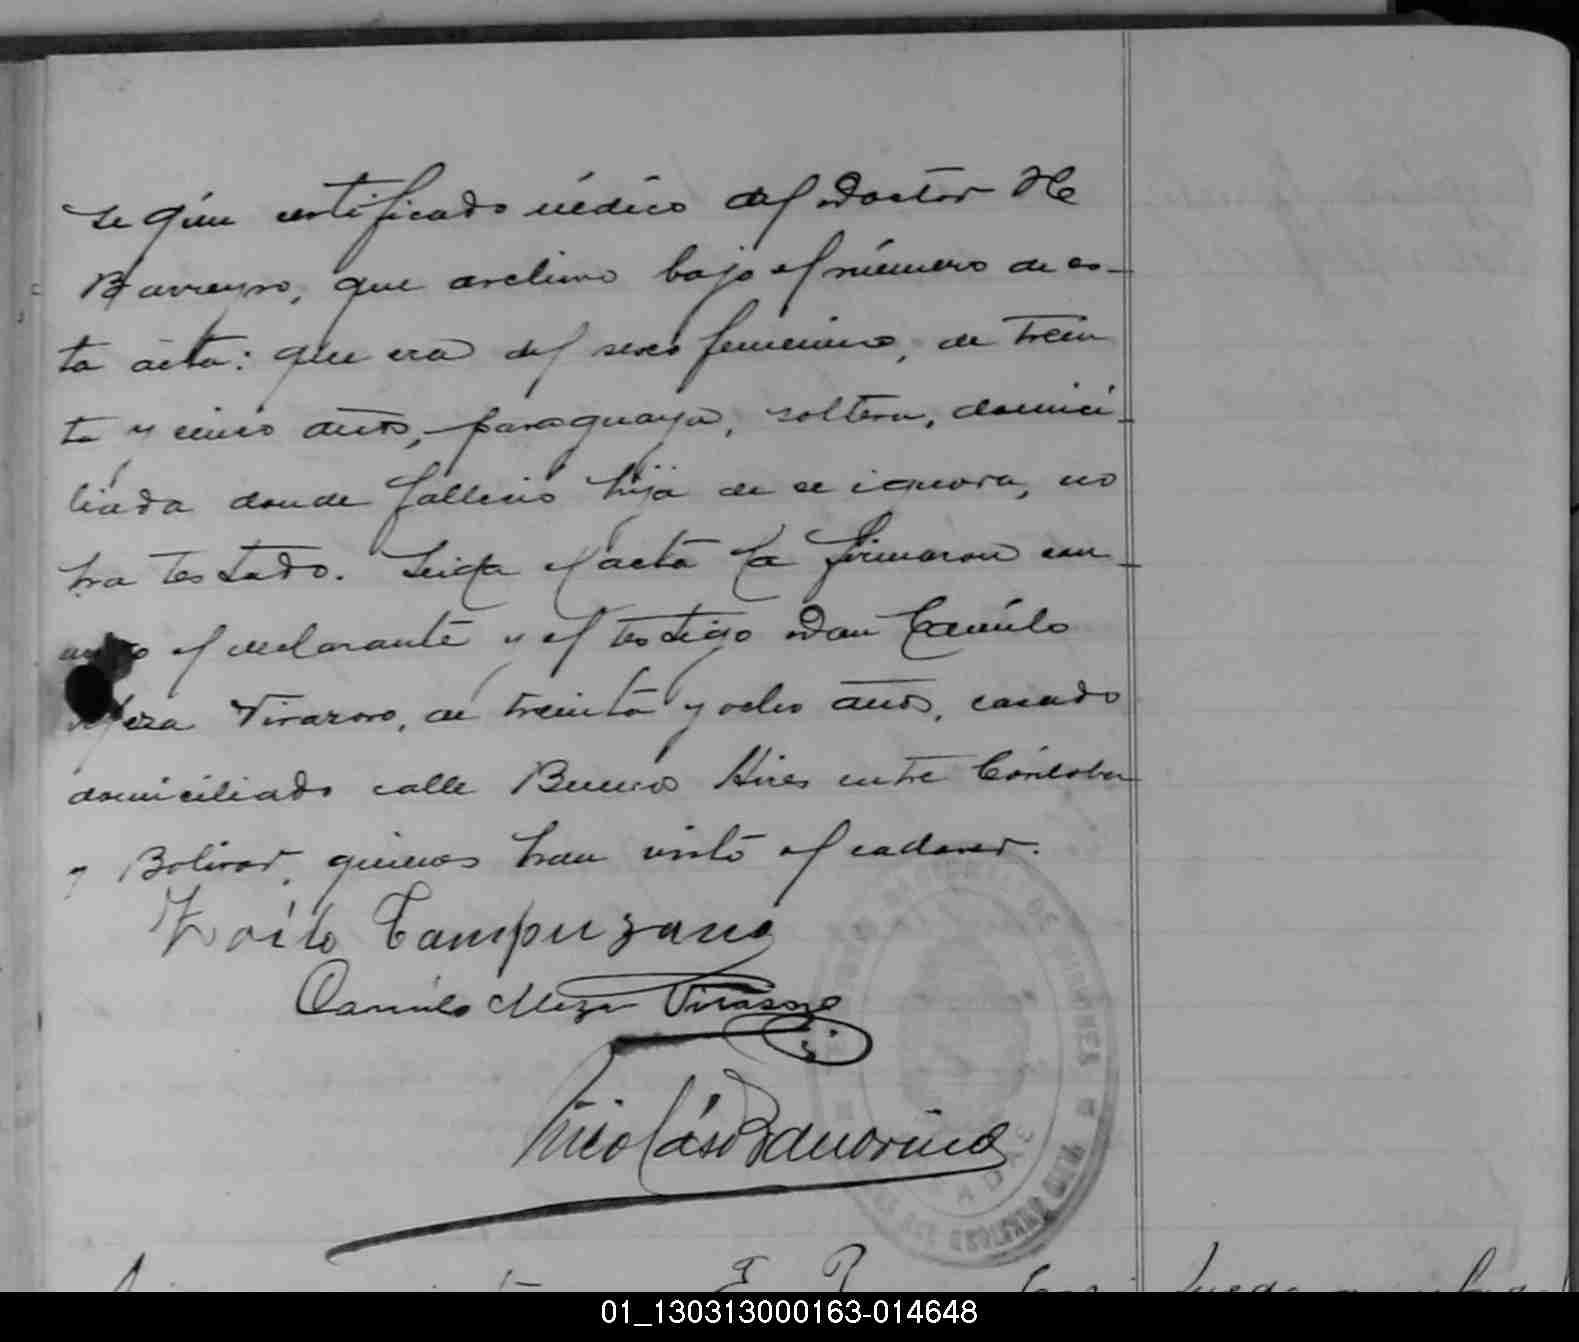 según certificado médico del Doctor H
Barreyro, que archivo bajo el número de es-
ta acta: que era del sexo femenino, de trein
ta y cinco años, paraguaya, soltera, domici-
liada donde falleció hija de se ignora, no
ha testado. Leida el acta la firmaron con-
migo el declarante y el testigo Don Camilo
Meza Virazoro, de treinta y ocho años, casado
domiciliado calle Buenos Aires entre Córdoba
y Bolivar, quienes han visto el cadaver.
Zoilo Campuzano
Camilo Meza Virasoro
Nicolás
01_130313000163-014648